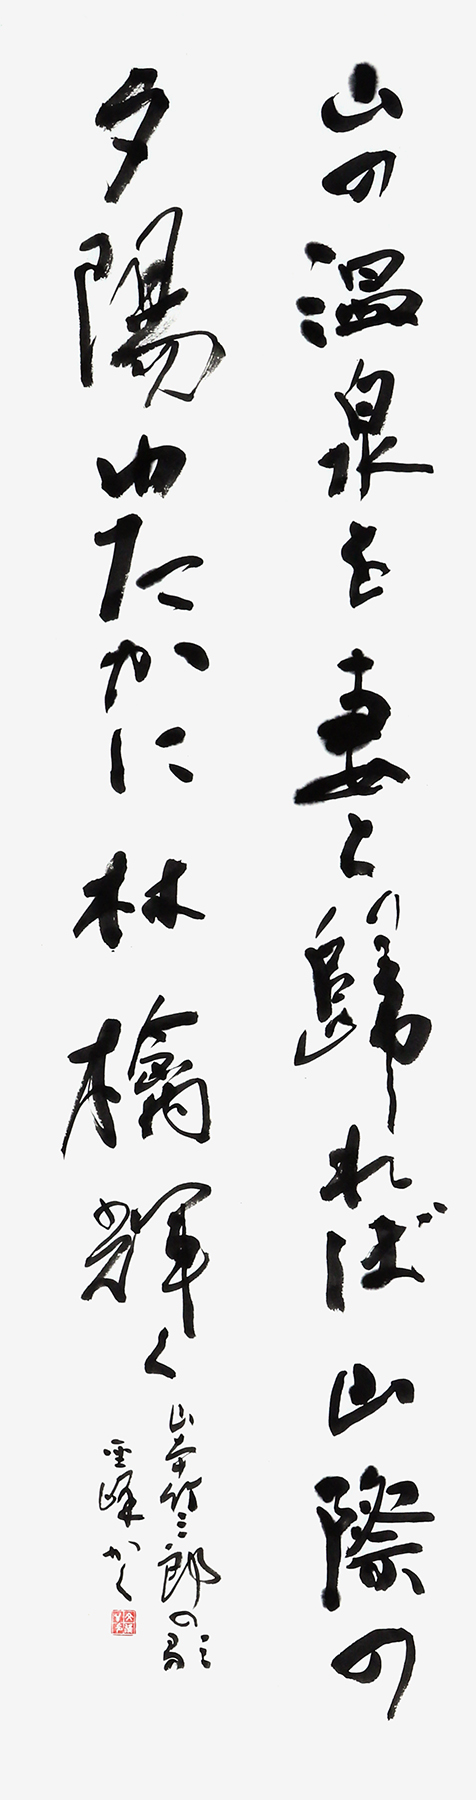 山の温泉を妻と歸れば山際の
夕陽ゆたかに林檎輝く
山本竹三郎の歌
雲峰かく